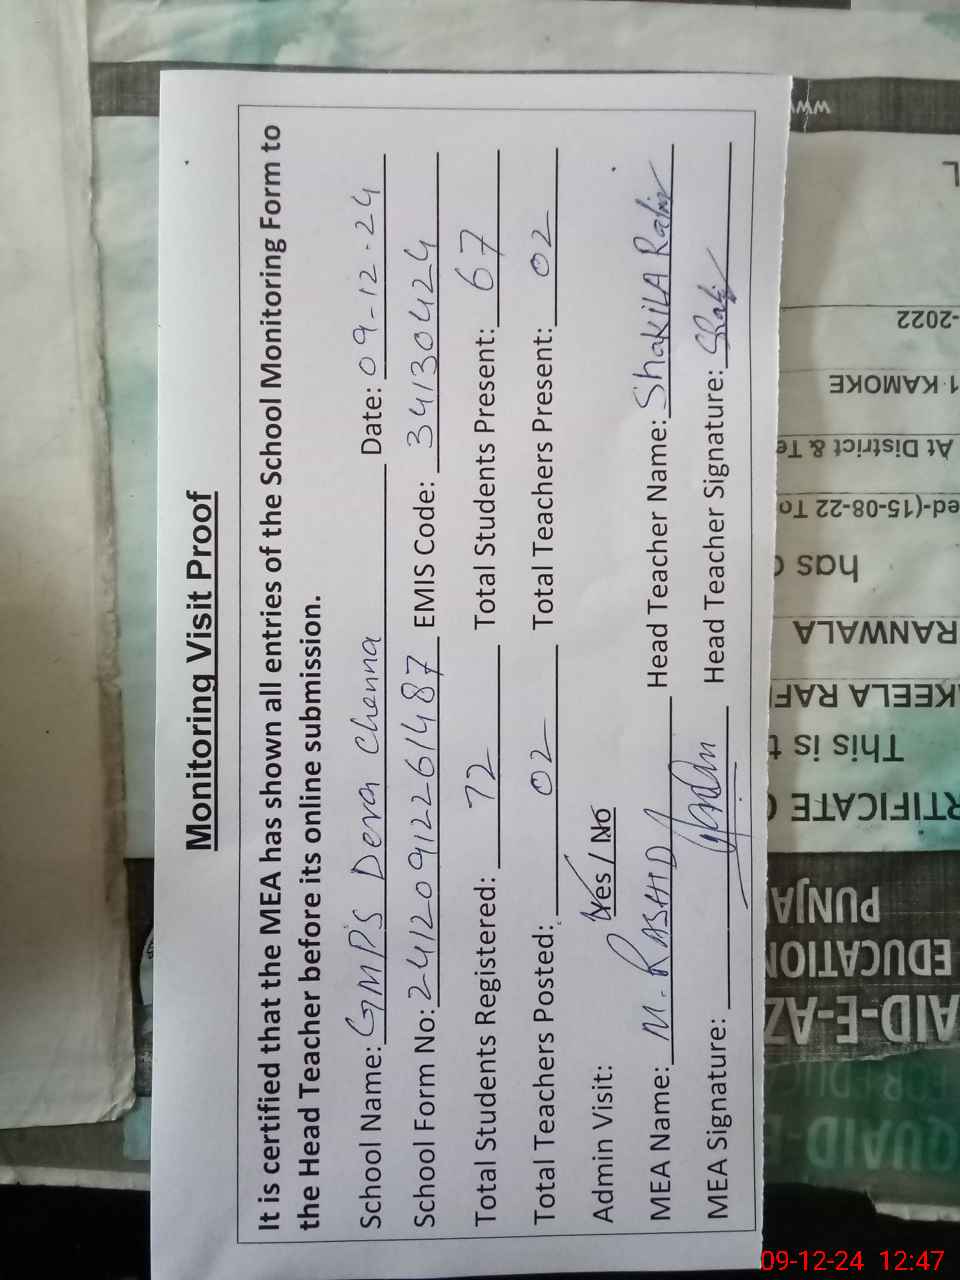 Monitoring Visit Proof
It is certified that the MEA has shown all entries of the School Monitoring Form to
the Head Teacher before its online submission.
School Name: GMPS Dera Chenna Date: 09-12-24
School Form No: 24120912261487 EMIS Code: 34130424
Total Students Registered: 72 Total Students Present: 67
Total Teachers Posted: 02 Total Teachers Present: 02
Admin Visit: Yes / No
MEA Name: M. RASHID Head Teacher Name: ShakilA Rafiq
MEA Signature: Head Teacher Signature:
WW
-2022
1 KAMOKE
At District & Te
ed-(15-08-22 To
has
RANWALA
KEELA RAF
This is t
RTIFICATE O
PUNJA
EDUCATION
AID-E-AZ
QUAID-E
09-12-24 12:47